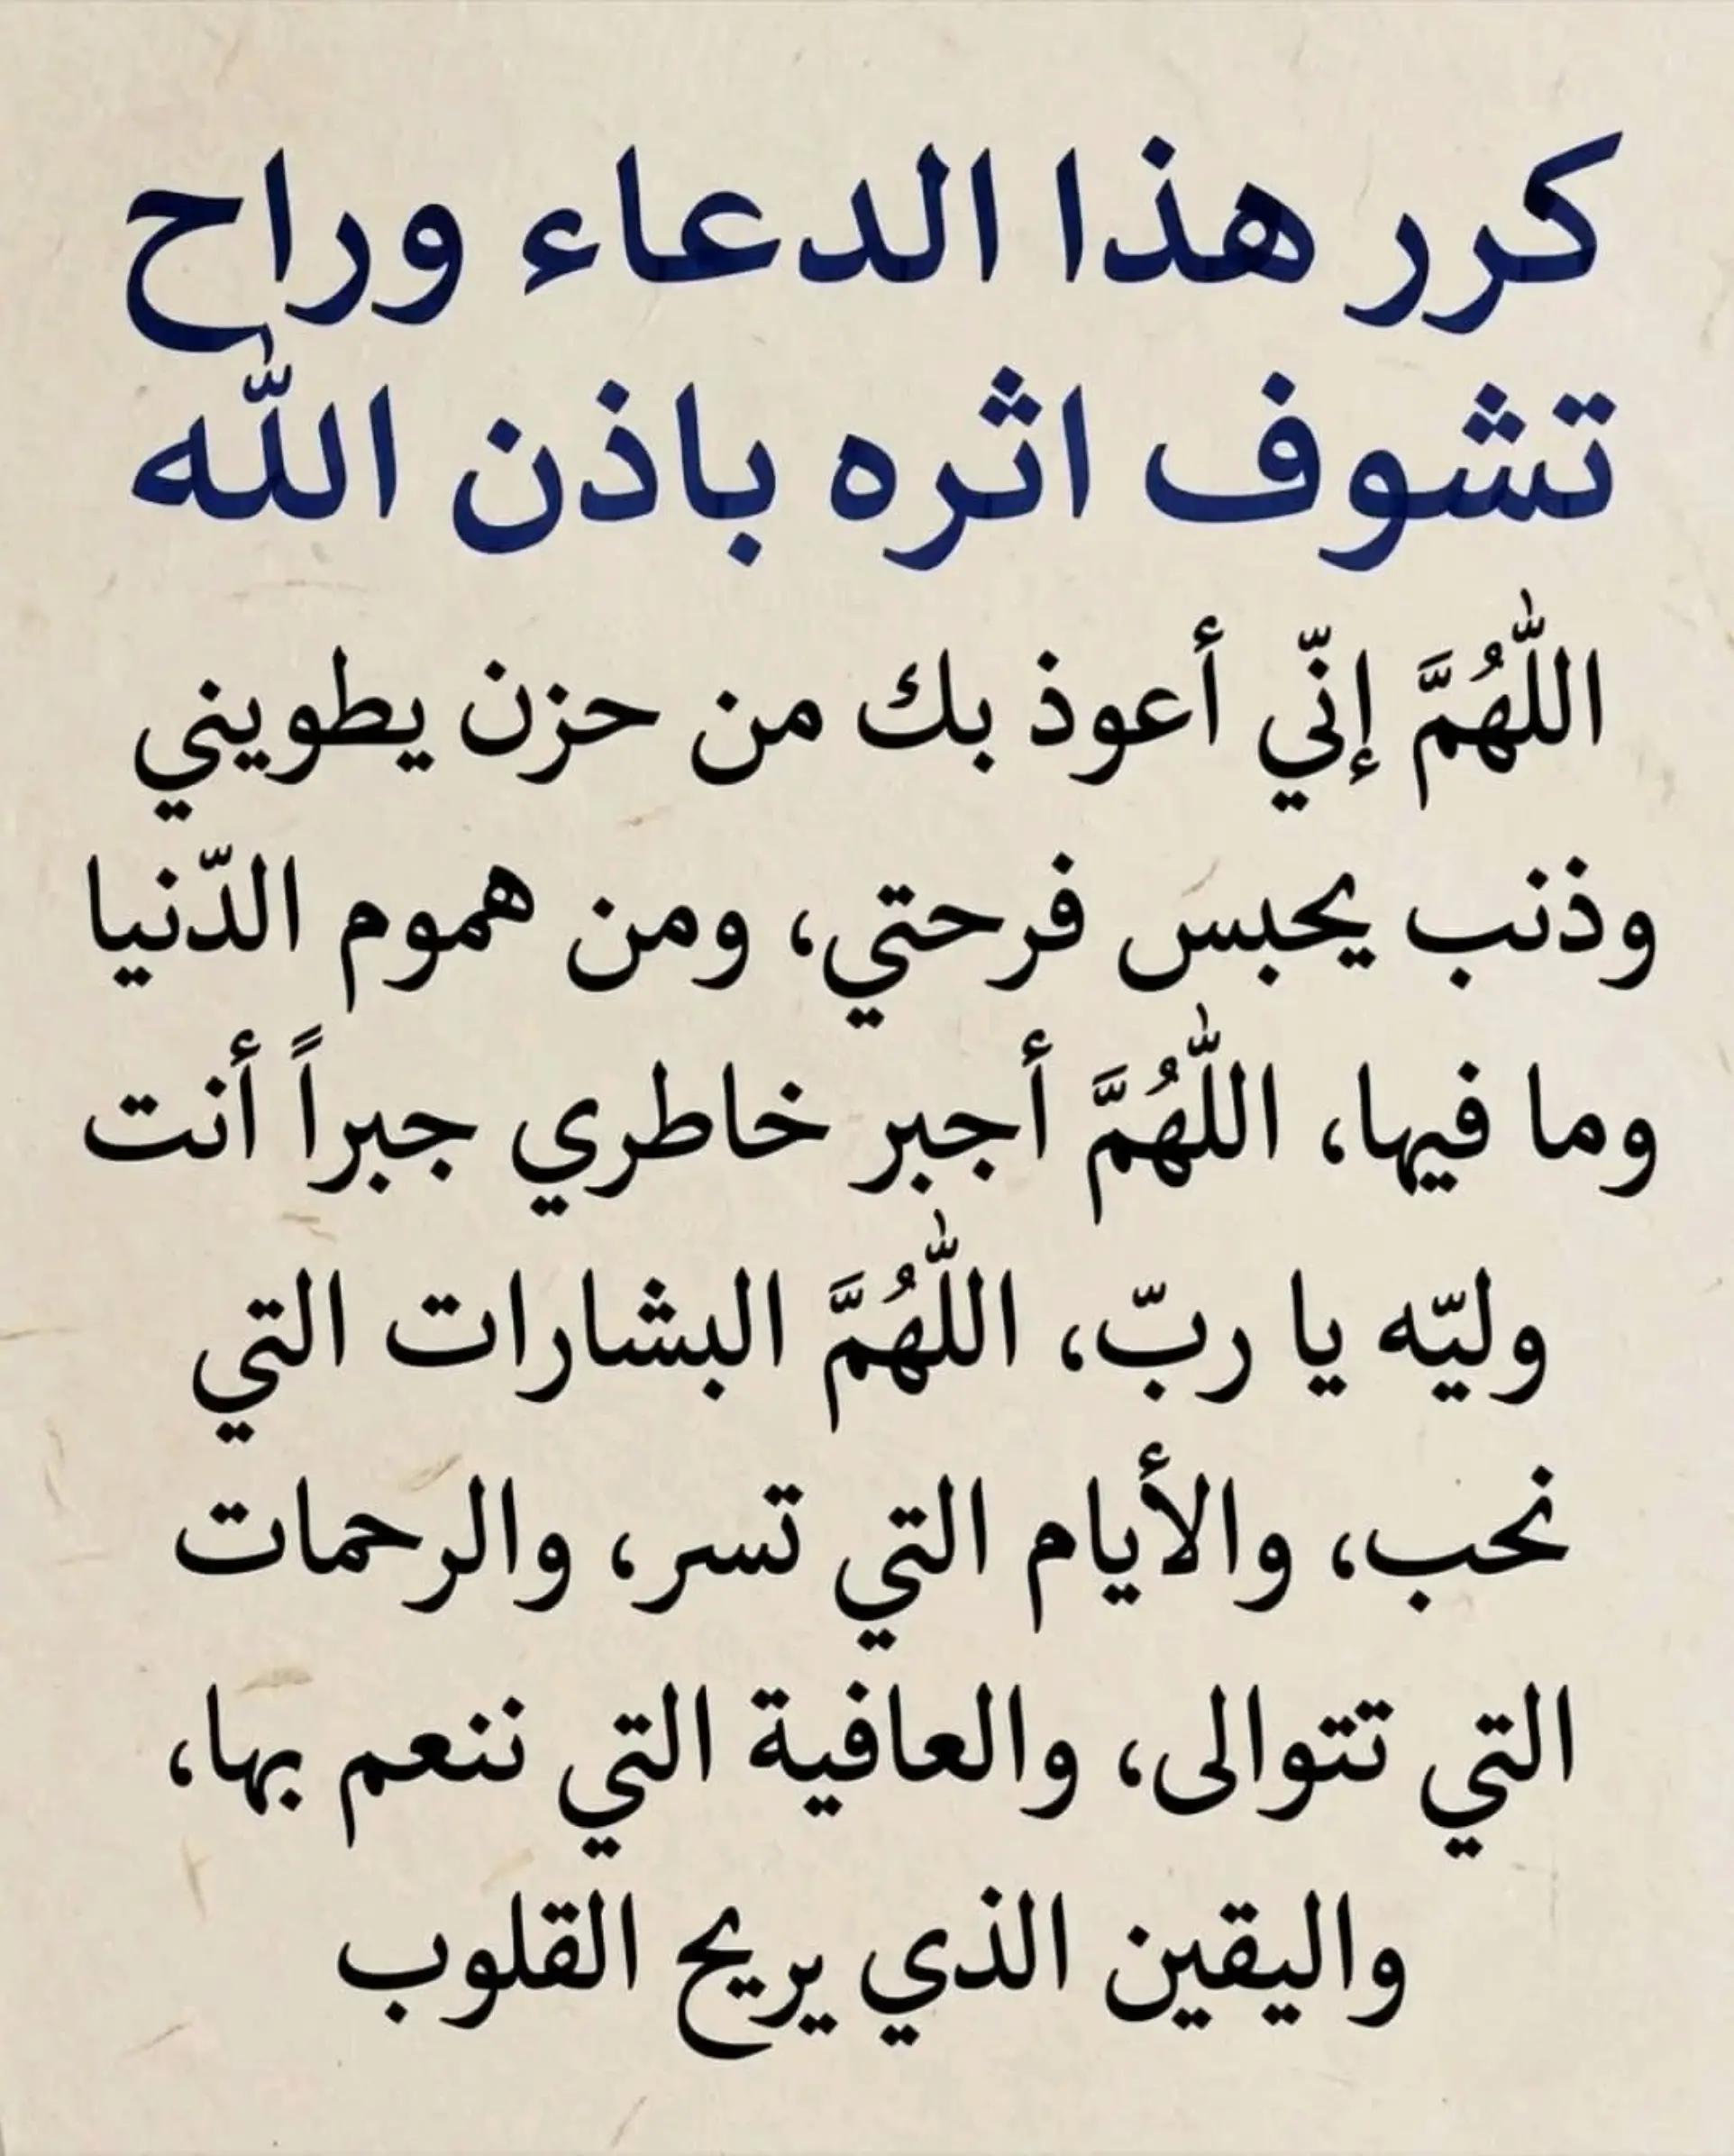 كرر هذا الدعاء وراح
تشوف اثره باذن الله
اللّٰهُمَّ إنّي أعوذ بك من حزن يطويني
وذنب يحبس فرحتي، ومن هموم الدّنيا
وما فيها، اللّٰهُمَّ أجبر خاطري جبراً أنت
وليّه يا ربّ، اللّٰهُمَّ البشارات التي
نحب، والأيام التي تسر، والرحمات
التي تتوالى، والعافية التي ننعم بها،
واليقين الذي يريح القلوب